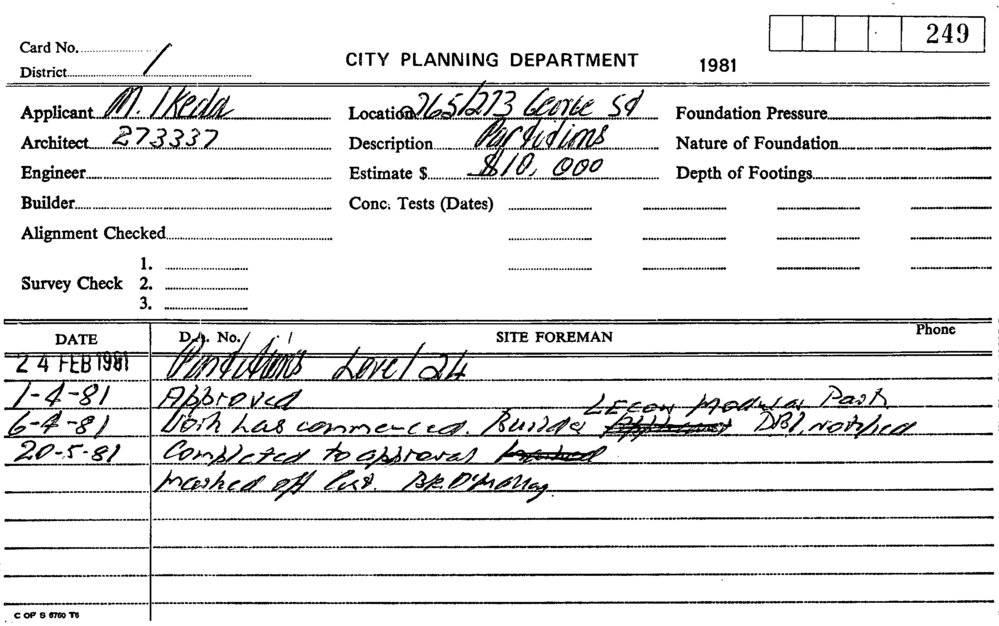 249
Card No.
District 1
CITY PLANNING DEPARTMENT 1981
Applicant M. Ikeda
Location 265/273 George St
Foundation Pressure
Architect 273337
Description Partitions
Nature of Foundation
Engineer
Estimate $ $10,000
Depth of Footings
Builder
Conc. Tests (Dates)
Alignment Checked
Survey Check 1.
2.
3.
DATE D.A. No. SITE FOREMAN Phone
24 FEB 1981 Partitions Level 24
1-4-81 Approved
6-4-81 Work has commenced. Builder Modular Part. DBI, notified
20-5-81 Completed to approval
marked off list.
C OF S 6760 T6